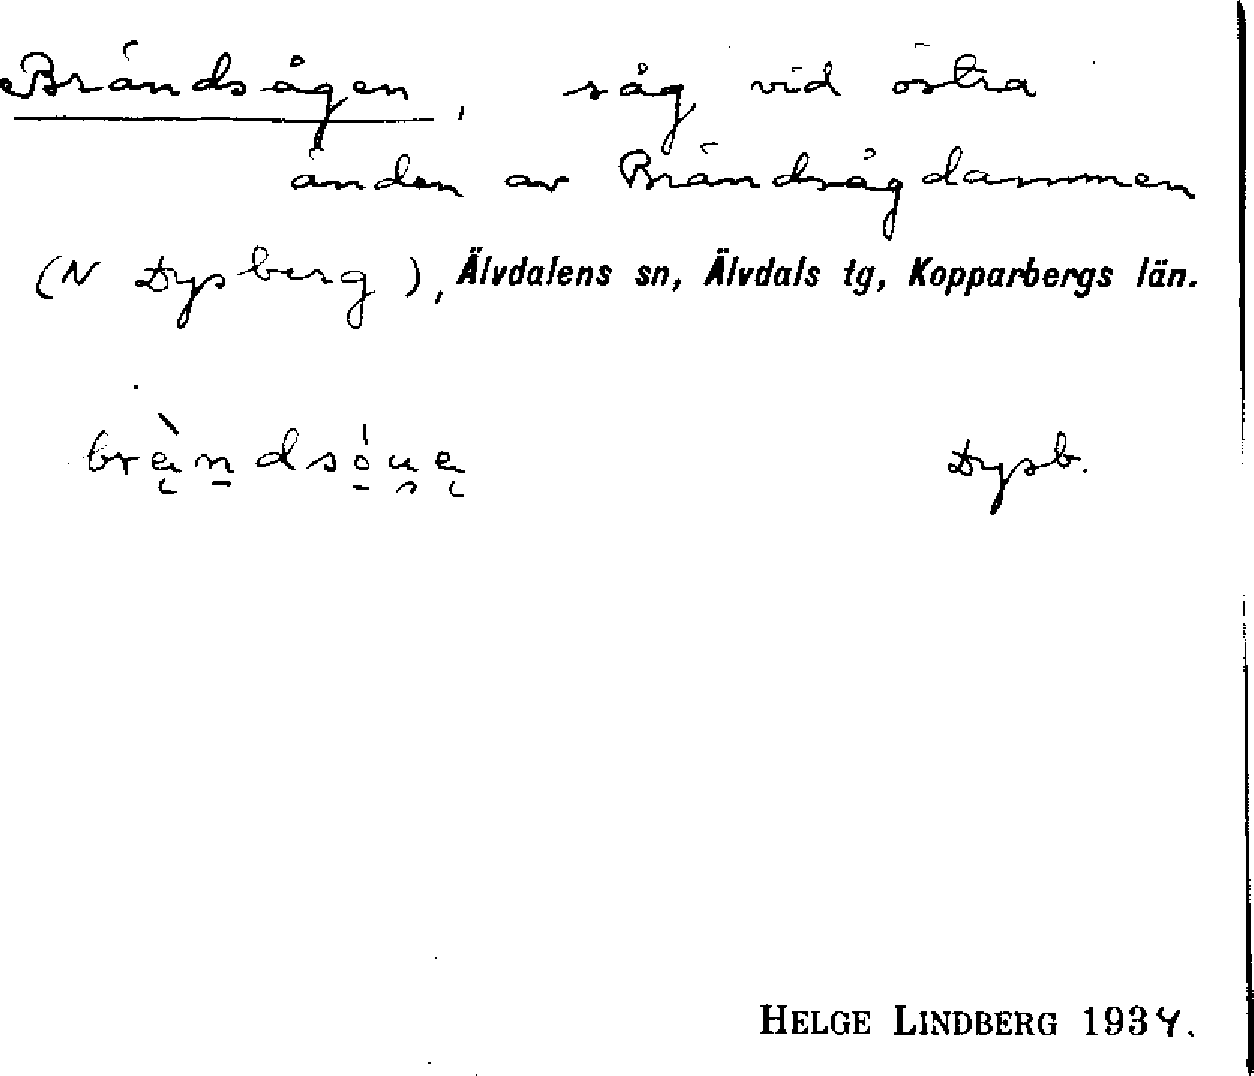 Brändsågen, såg vid östra
änden av Brändsågdammen
(N Dysberg), Älvdalens sn, Älvdals tg, Kopparbergs län.
Dysb.
HELGE LINDBERG 1934.